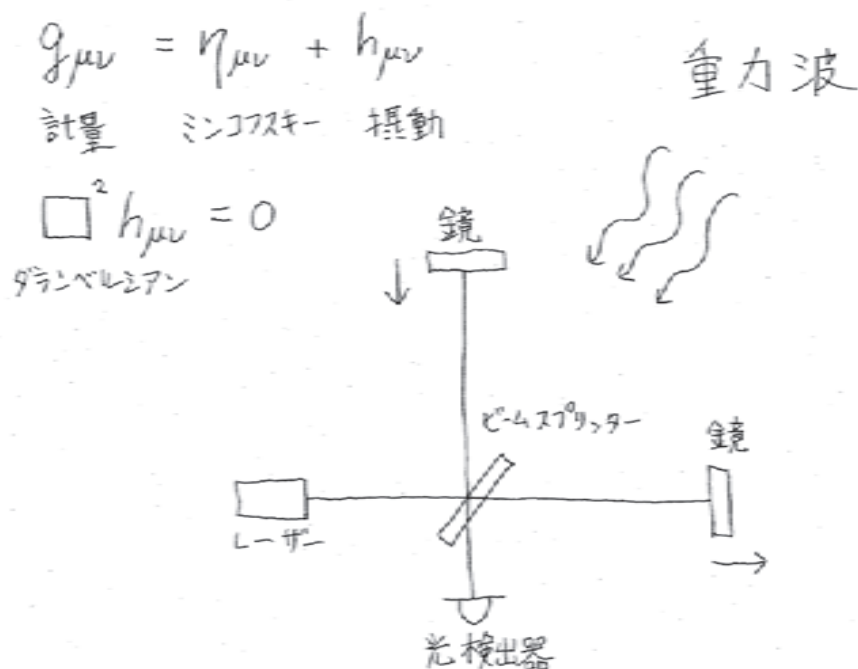 gμν = ημν + hμν
計量 ミンコフスキー 摂動
□² hμν = 0
ダランベルシアン
重力波
鏡
ビームスプリッター
鏡
レーザー
光検出器